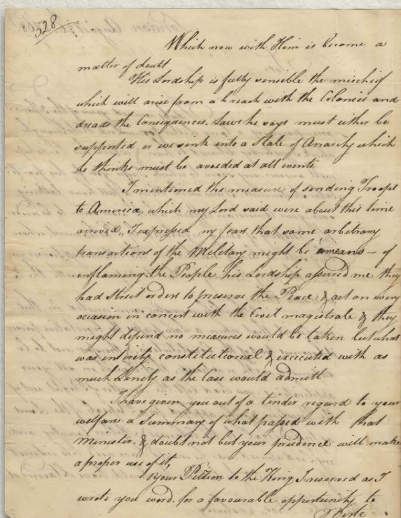 528
Which now with Him is become a
matter of doubt.
His Lordship is fully sensible the mischief
which will arise from a breach with the Colonies and
dreads the Consequences. Laws he says must either be
supported or we sink into a State of Anarchy which
he thinks must be avoided at all events.
I mentioned the measure of sending Troops
to America, which my Lord said were about this time
arrived. I expressed my fears that some arbitrary
transactions of the Military might be a means of
enflaming the People. His Lordship assured me they
had Strict orders to preserve the Peace & act on every
occasion in concert with the Civil magistrate & they
might depend no measures would be taken but what
was entirely constitutional & executed with as
much Lenity as the Case would admitt
I have given you out of a tender regard to your
welfare a Summary of what passed with that
Minister, & doubt not but your prudence will make
a proper use of it.
Your Petition to the King I reserved as I
wrote you word, for a favourable opportunity to